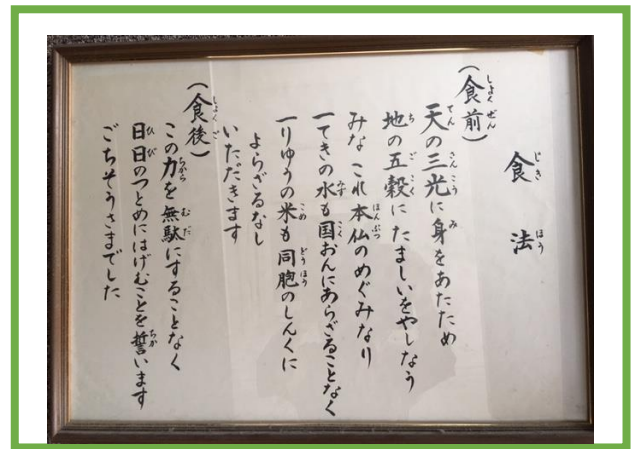 食法
(食前)
天の三光に身をあたため
地の五穀に たましいをやしなう
みな これ本仏のめぐみなり
一てきの水も国おんにあらざることなく
一りゅうの米も同胞のしんくに
よらざるなし
いただきます
(食後)
この力を無駄にすることなく
日日のつとめにはげむことを誓います
ごちそうさまでした